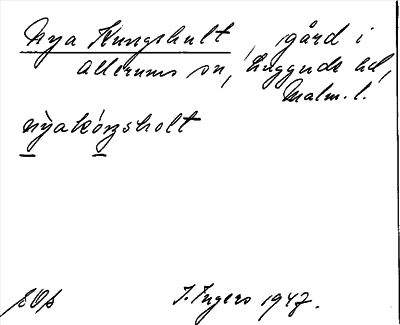 Nya Kungshult, gård i
Allerums sn, Luggude hd,
Malm. l.
nỳakóŋsholt
I. Ingers 1947.